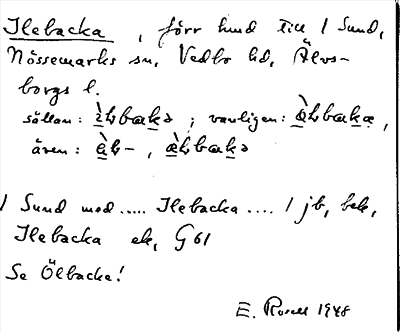 Ilebacka, förr hmd till 1 Sund,
Nössemarks sn, Vedbo hd, Älvs-
borgs l.
sällan: ; vanligen:
även:
1 Sund med ..... Ilebacka .... 1 jb, bek,
Ilebacka ek, G61
Se Ölbacka!
E. Rosell 1948